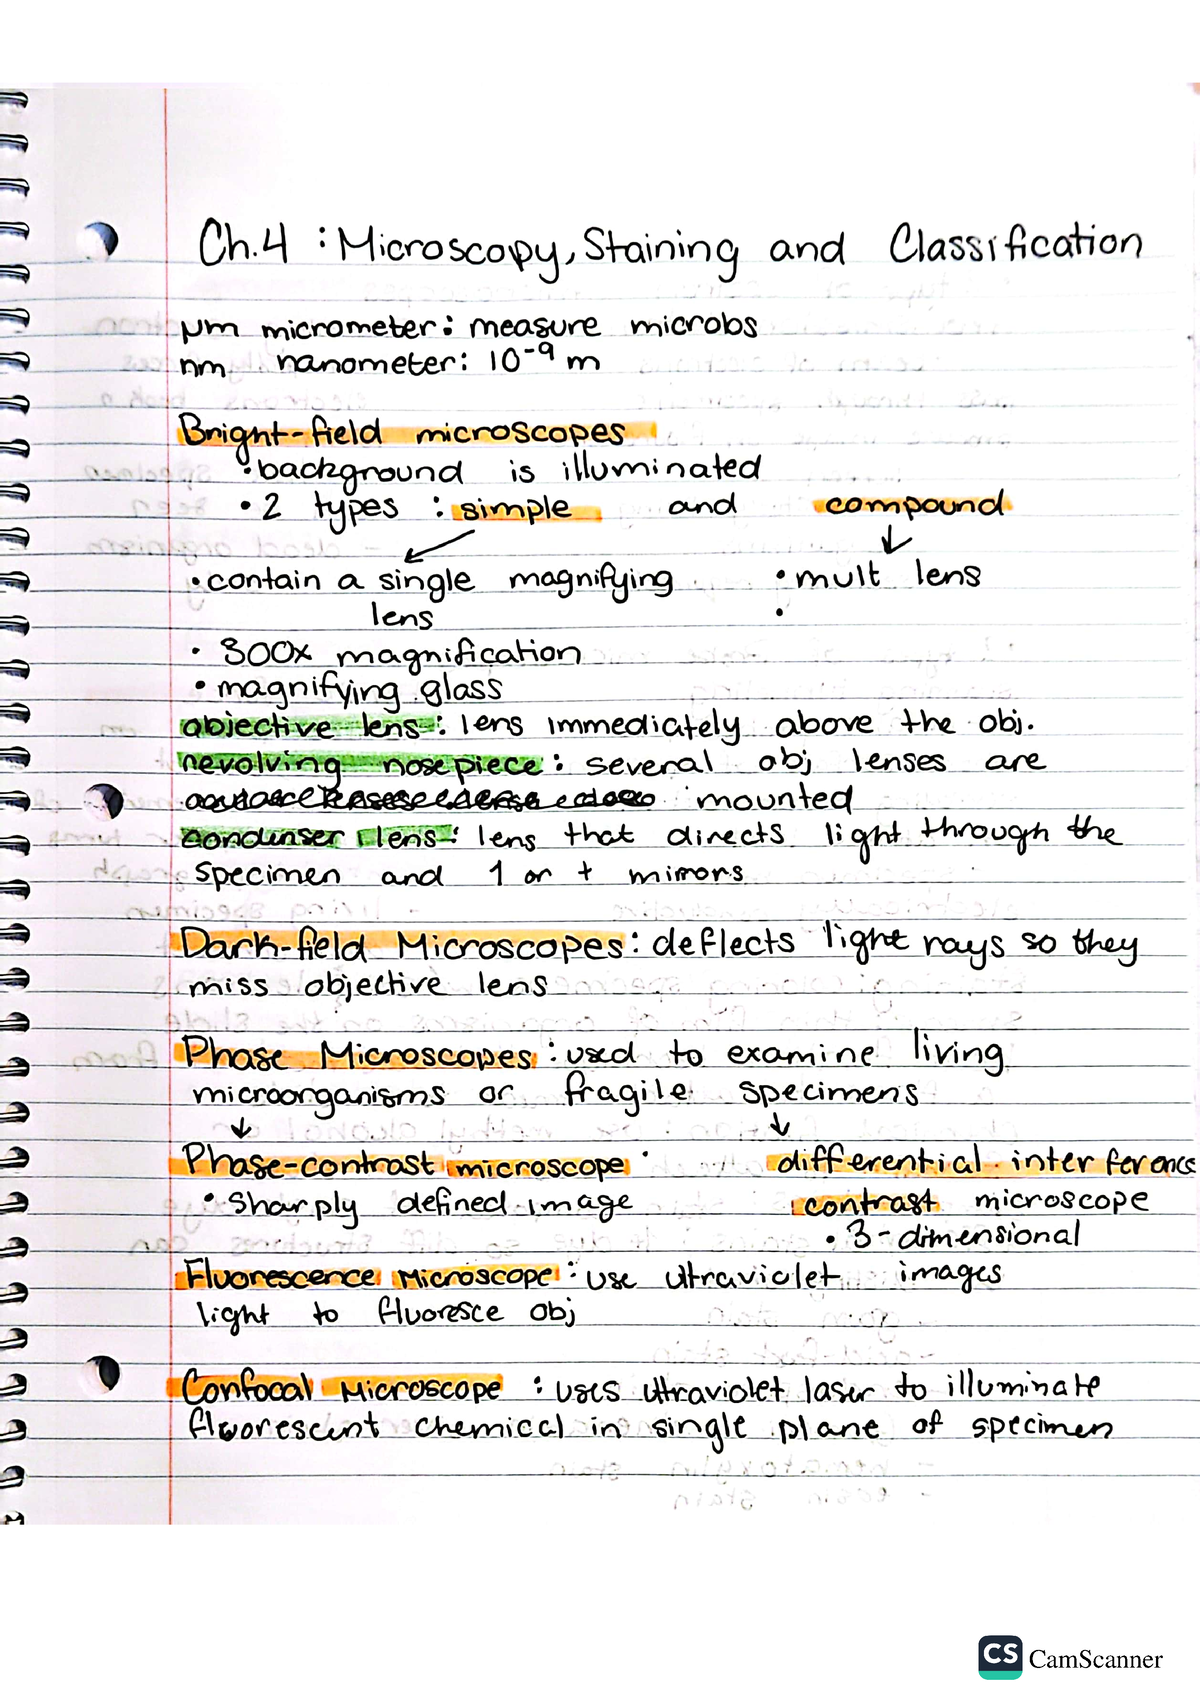 Ch.4 : Microscopy, Staining and Classification
µm micrometer: measure microbs
nm nanometer: 10⁻⁹ m
Bright-field microscopes
• background is illuminated
• 2 types : simple and compound
• contain a single magnifying • mult lens
lens •
• 300x magnification
• magnifying glass
objective lens: lens immediately above the obj.
revolving nosepiece: several obj lenses are
mounted
condenser lens: lens that directs light through the
specimen and 1 or + mirrors
Dark-field Microscopes: deflects light rays so they
miss objective lens
Phase Microscopes: used to examine living
microorganisms or fragile specimens
Phase-contrast microscope differential interference
• sharply defined image contrast microscope
• 3-dimensional
Fluorescence Microscope: use ultraviolet images
light to fluoresce obj
Confocal Microscope : uses ultraviolet laser to illuminate
fluorescent chemical in single plane of specimen
CS CamScanner